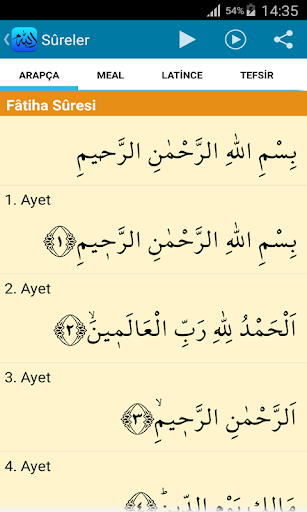 54% 14:35
Sûreler
ARAPÇA MEAL LATİNCE TEFSİR
Fâtiha Sûresi
بِسْمِ اللهِ الرَّحْمٰنِ الرَّحيمِ
1. Ayet
بِسْمِ اللهِ الرَّحْمٰنِ الرَّحيمِ ﴿١﴾
2. Ayet
اَلْحَمْدُ لِلهِ رَبِّ الْعَالَمينَۙ ﴿٢﴾
3. Ayet
اَلرَّحْمٰنِ الرَّحيمِۙ ﴿٣﴾
4. Ayet
مَالِكِ يَوْمِ الدّينِۜ ﴿٤﴾